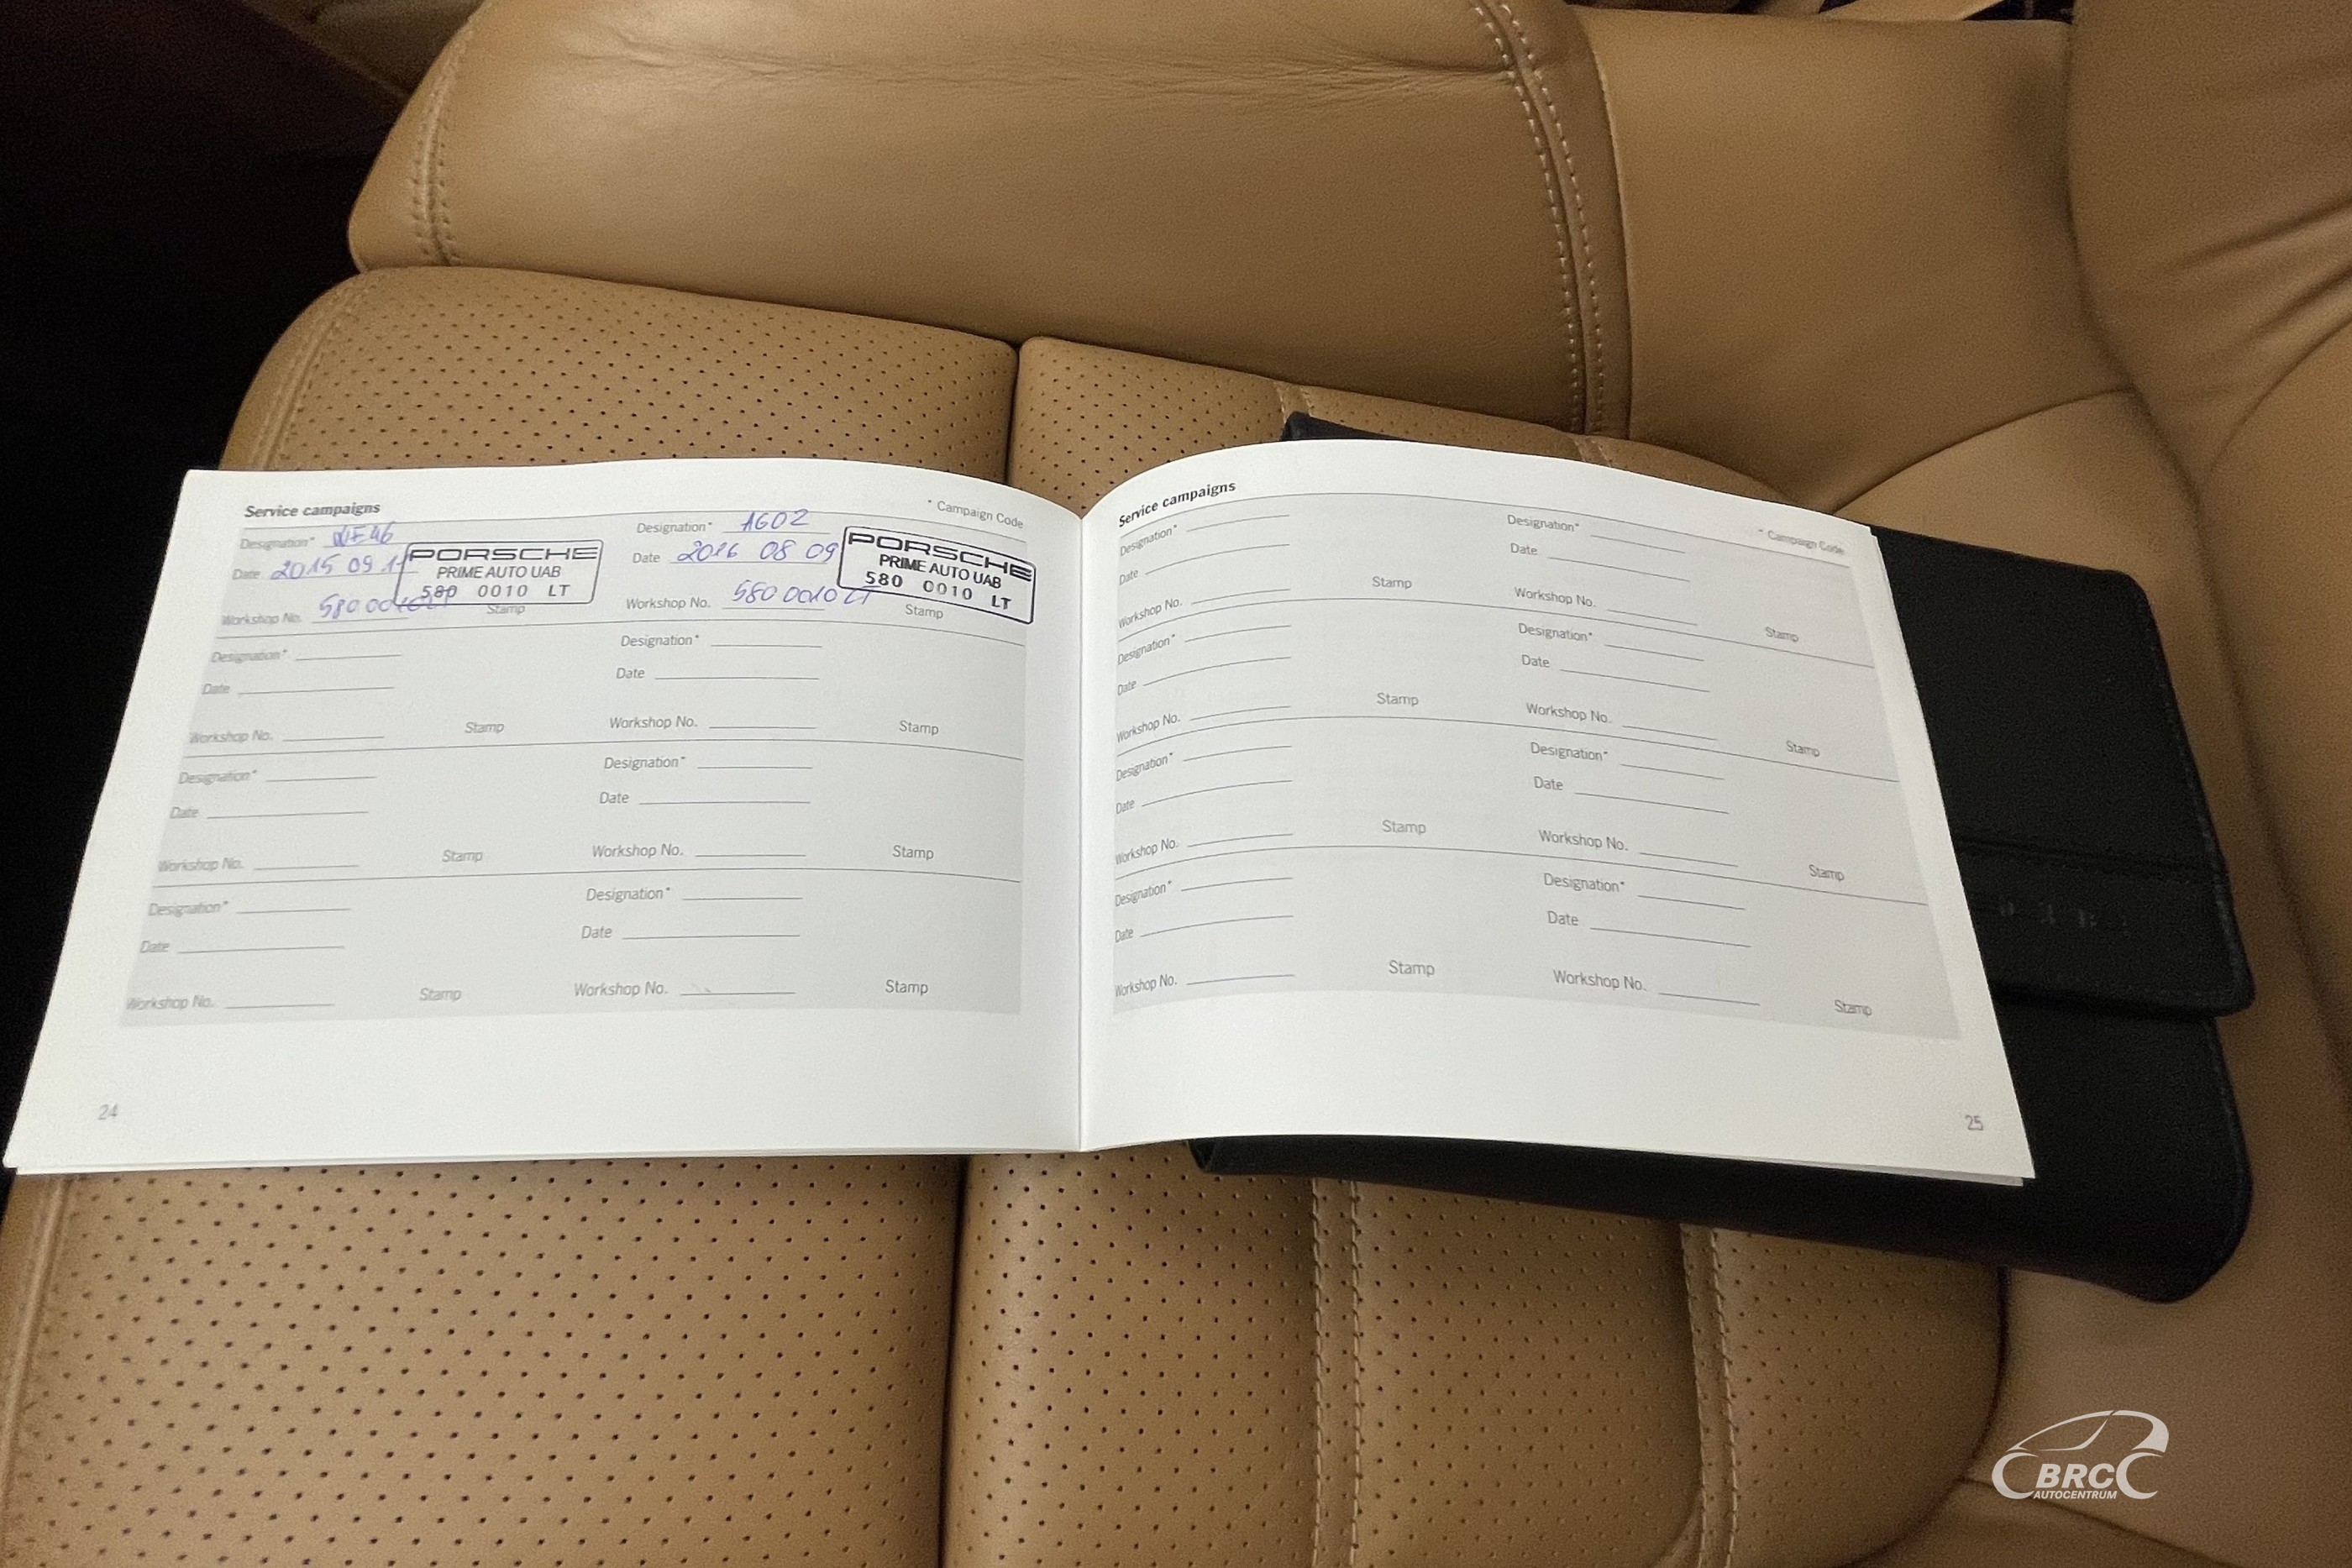 Service campaigns
* Campaign Code
Designation* WE46
Date 2015 09
Workshop No. 580 0010 LT
PORSCHE
PRIME AUTO UAB
580 0010 LT
Stamp
Designation* AG02
Date 2016 08 09
Workshop No. 580 0010 LT
PORSCHE
PRIME AUTO UAB
580 0010 LT
Stamp
Designation*
Date
Workshop No.
Stamp
Designation*
Date
Workshop No.
Stamp
Designation*
Date
Workshop No.
Stamp
Designation*
Date
Workshop No.
Stamp
Designation*
Date
Workshop No.
Stamp
Designation*
Date
Workshop No.
Stamp
24
Service campaigns
* Campaign Code
Designation*
Date
Workshop No.
Stamp
Designation*
Date
Workshop No.
Stamp
Designation*
Date
Workshop No.
Stamp
Designation*
Date
Workshop No.
Stamp
Designation*
Date
Workshop No.
Stamp
Designation*
Date
Workshop No.
Stamp
Designation*
Date
Workshop No.
Stamp
Designation*
Date
Workshop No.
Stamp
25
BRC
AUTOCENTRUM